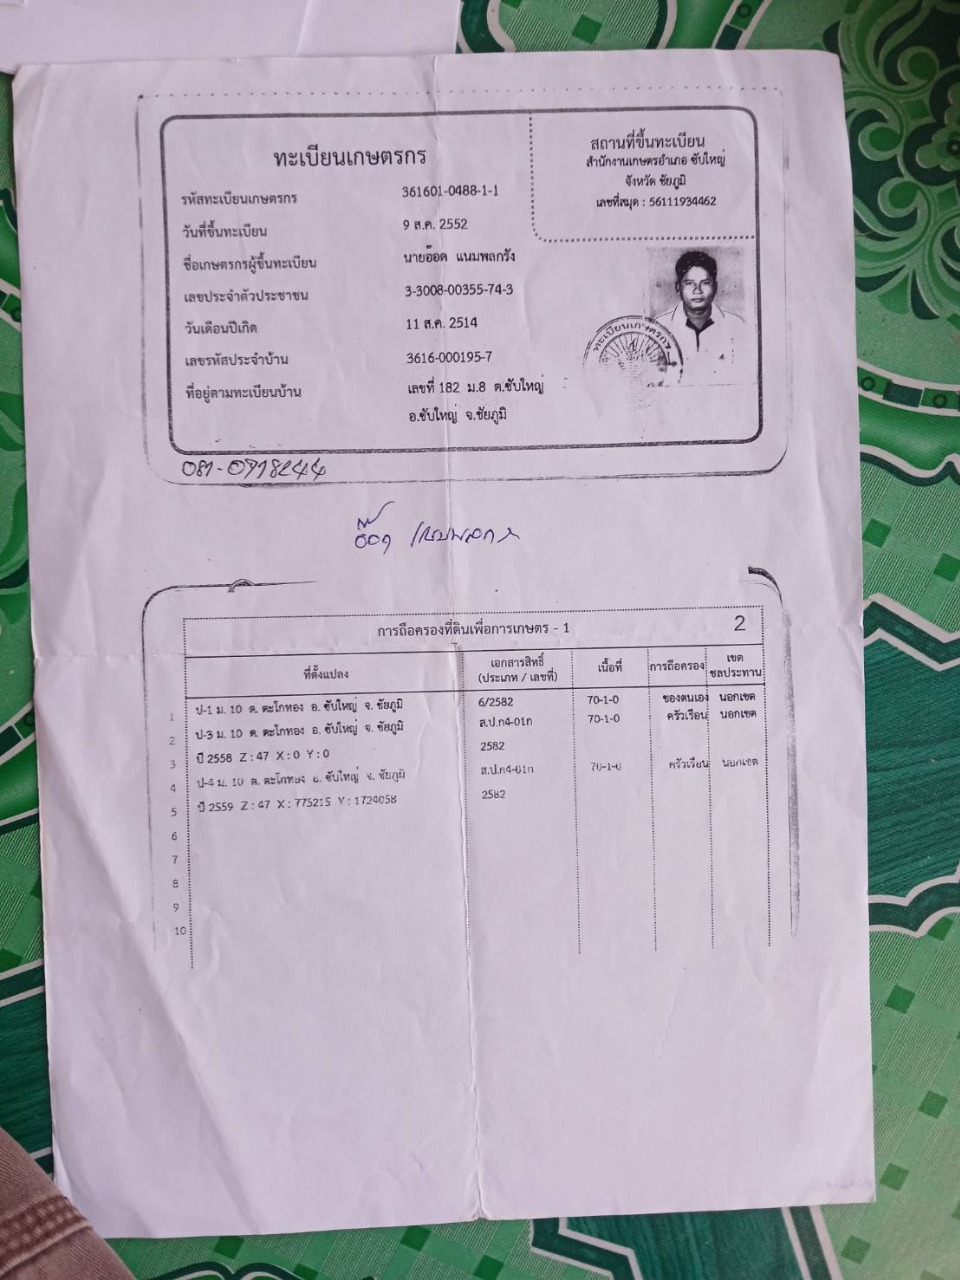 ทะเบียนเกษตรกร
รหัสทะเบียนเกษตรกร 361601-0488-1-1
วันที่ขึ้นทะเบียน 9 ส.ค. 2552
ชื่อเกษตรกรผู้ขึ้นทะเบียน นายอ๊อด แนมพลกรัง
เลขประจำตัวประชาชน 3-3008-00355-74-3
วันเดือนปีเกิด 11 ส.ค. 2514
เลขรหัสประจำบ้าน 3616-000195-7
ที่อยู่ตามทะเบียนบ้าน เลขที่ 182 ม.8 ต.ซับใหญ่
อ.ซับใหญ่ จ.ชัยภูมิ
สถานที่ขึ้นทะเบียน
สำนักงานเกษตรอำเภอ ซับใหญ่
จังหวัด ชัยภูมิ
เลขที่สมุด : 56111934462
ทะเบียนเกษตรกร
อ๊อด
การถือครองที่ดินเพื่อการเกษตร - 1 2
ที่ตั้งแปลง เอกสารสิทธิ์ (ประเภท / เลขที่) เนื้อที่ การถือครอง เขตชลประทาน
1 ป-1 ม. 10 ต. ตะโกทอง อ. ซับใหญ่ จ. ชัยภูมิ 6/2582 70-1-0 ของตนเอง นอกเขต
2 ป-3 ม. 10 ต. ตะโกทอง อ. ซับใหญ่ จ. ชัยภูมิ ส.ป.ก4-01ก 70-1-0 ครัวเรือน นอกเขต
3 ปี 2558 Z : 47 X : 0 Y : 0 2582
4 ป-4 ม. 10 ต. ตะโกทอง อ. ซับใหญ่ จ. ชัยภูมิ ส.ป.ก4-01ก 70-1-0 ครัวเรือน นอกเขต
5 ปี 2559 Z : 47 X : 775215 Y : 1724058 2582
6
7
8
9
10